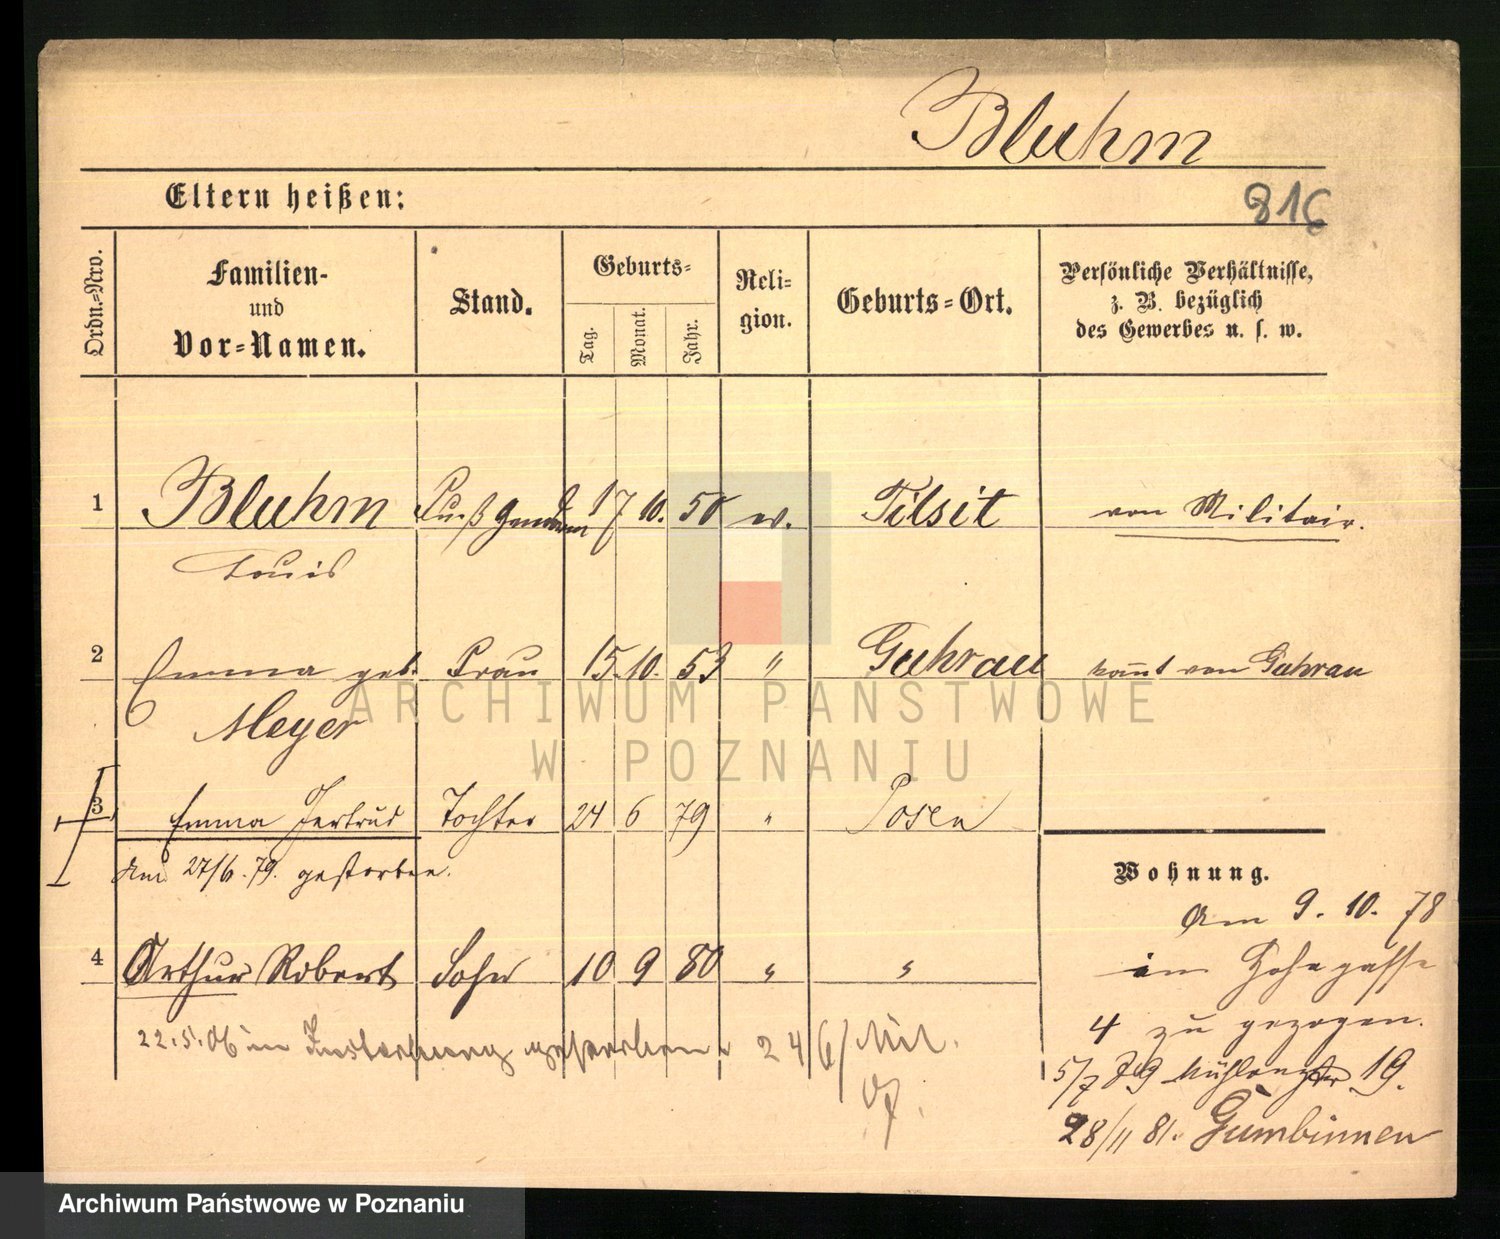 Bluhm
Eltern heißen:
816
Ordn.=Nro.
Familien-
und
Vor=Namen.
Stand.
Geburts=
Tag.
Monat.
Jahr.
Reli=
gion.
Geburts=Ort.
Persönliche Verhältnisse,
z. B. bezüglich
des Gewerbes u. s. w.
1 Bluhm 17 10. 50 ev. Tilsit von Militair.
Louis
2 Emma geb. Frau 15. 10. 53 " Guhrau kommt von Guhrau
Meyer
3 Emma Gertrud Tochter 24 6 79 " Posen
Am 27/6.79. gestorben.
4 Arthur Robert Sohn 10 9 80 " "
22.5.06 in Insterburg 24/6/
Wohnung.
Am 9. 10. 78
4 zu gezogen.
5/7 79 19.
28/11 81. Gumbinnen
ARCHIWUM PAŃSTWOWE
W POZNANIU
Archiwum Państwowe w Poznaniu